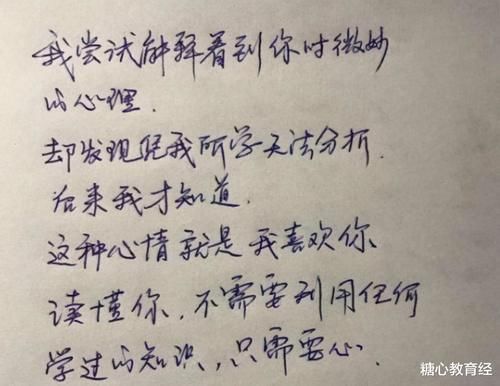 我尝试解释看到你时微妙
的心理.
却发现凭我所学无法分析.
后来我才知道.
这种心情就是我喜欢你
读懂你.不需要利用任何
学过的知识,只需要心.
糖心教育经